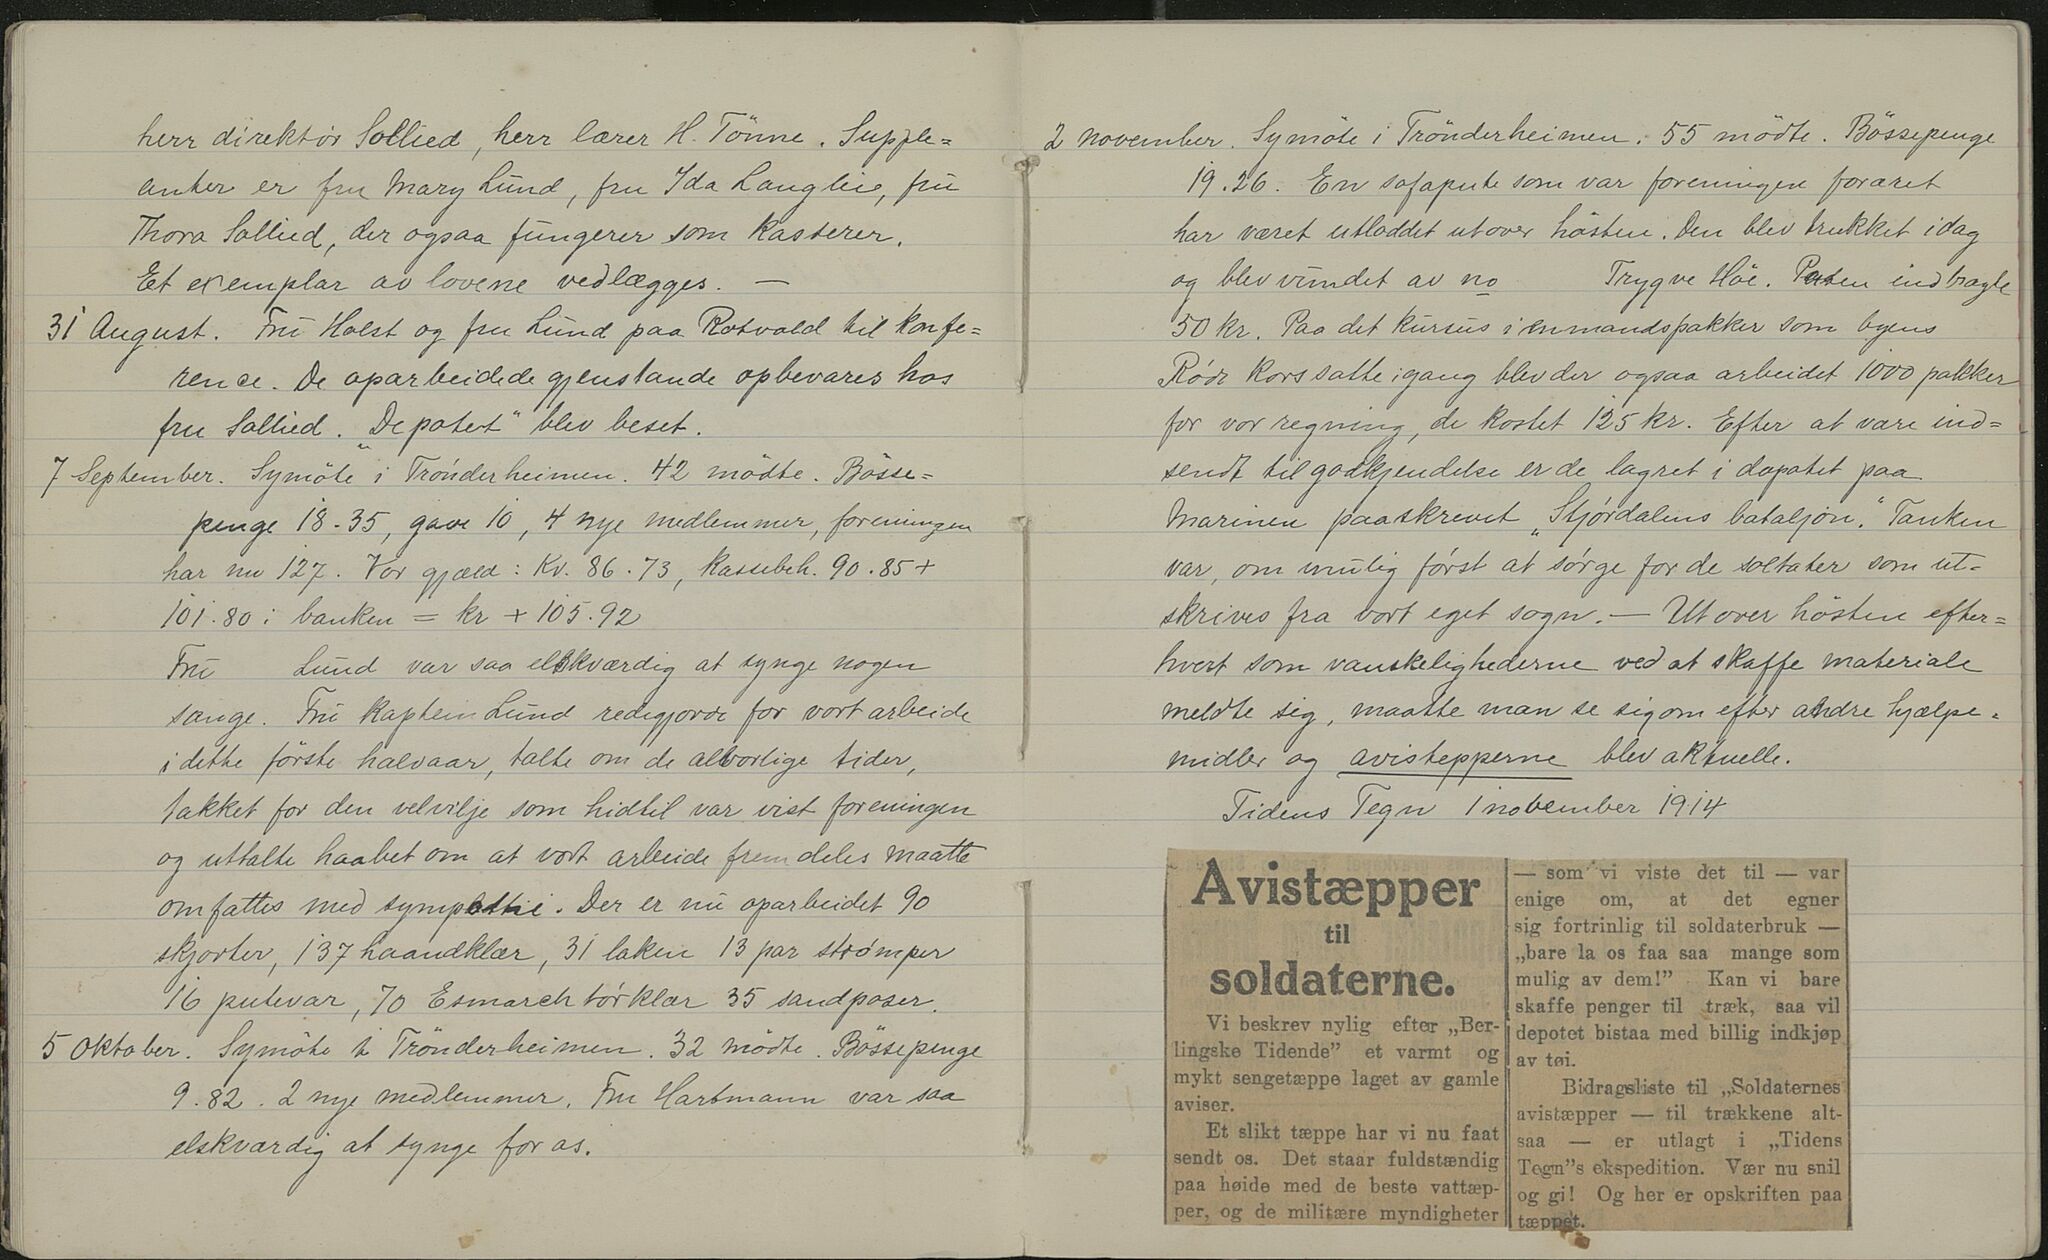 herr direktør Sollied, herr lærer H. Tönne. Supple=
anter er fru Mary Lund, fru Ida Langlie, fru
Thora Sollied, der ogsaa fungerer som Kasserer.
Et exemplar av lovene vedlægges. —
31 August. Fru Holst og fru Lund paa Rotvold til konfe=
rence. De oparbeidede gjenstande opbevares hos
fru Sollied. „Depotet" blev beset.
7 September. Symöte i Trónderheimen. 42 mödte. Bösse=
penge 18.35, gave 10, 4 nye medlemmer, foreningen
har nu 127. Vor gjæld: Kr. 86.73, kassebeh. 90.85 +
101.80 i banken = kr + 105.92
Fru Lund var saa elskværdig at synge nogen
sange. Fru Kaptein Lund redegjorde for vort arbeide
i dette förste halvaar, talte om de alvorlige tider,
takket for den velvilje som hidtil var vist foreningen
og uttalte haabet om at vort arbeide fremdeles maatte
omfattes med sympathi. Der er nu oparbeidet 90
skjorter, 137 haandklær, 31 laken 13 par strømper
16 putevar, 70 Esmarch tórklær 35 sandposer.
5 Oktober. Symöte i Trönderheimen. 32 mödte. Bössepenge
9.82. 2 nye medlemmer. Fru Hartmann var saa
elskværdig at synge for os.
2 November. Symöte i Trönderheimen. 55 mödte. Bössepenge
19.26. En sofapute som var foreningen foræret
har været utloddet utover hösten. Den blev trukket idag
og blev vundet av no Trygve Höe. Puten indbragte
50 kr. Paa det kursus i enmandspakker som byens
Röde Kors satte igang blev der ogsaa arbeidet 1000 pakker
for vor regning, de kostet 125 kr. Efter at være ind=
sendt til godkjendelse er de lagret i depotet paa
Marinen paaskrevet „Stjórdalens bataljon." Tanken
var, om mulig fórst at sórge for de soltater som ut-
skrives fra vort eget sogn. — Utover hösten efter=
hvert som vanskelighederne ved at skaffe materiale
meldte sig, maatte man se sig om efter andre hjælpe=
midler og avistepperne blev aktuelle.
Tidens Tegn 1 november 1914
Avistæpper
til
soldaterne.
Vi beskrev nylig efter „Ber-
lingske Tidende" et varmt og
mykt sengetæppe laget av gamle
aviser.
Et slikt tæppe har vi nu faat
sendt os. Det staar fuldstændig
paa høide med de beste vattæp-
per, og de militære myndigheter
— som vi viste det til — var
enige om, at det egner
sig fortrinlig til soldaterbruk —
„bare la os faa saa mange som
mulig av dem!" Kan vi bare
skaffe penger til træk, saa vil
depotet bistaa med billig indkjøp
av tøi.
Bidragsliste til „Soldaternes
avistæpper — til trækkene alt-
saa — er utlagt i „Tidens
Tegn"s ekspedition. Vær nu snil
og gi! Og her er opskriften paa
tæppet.